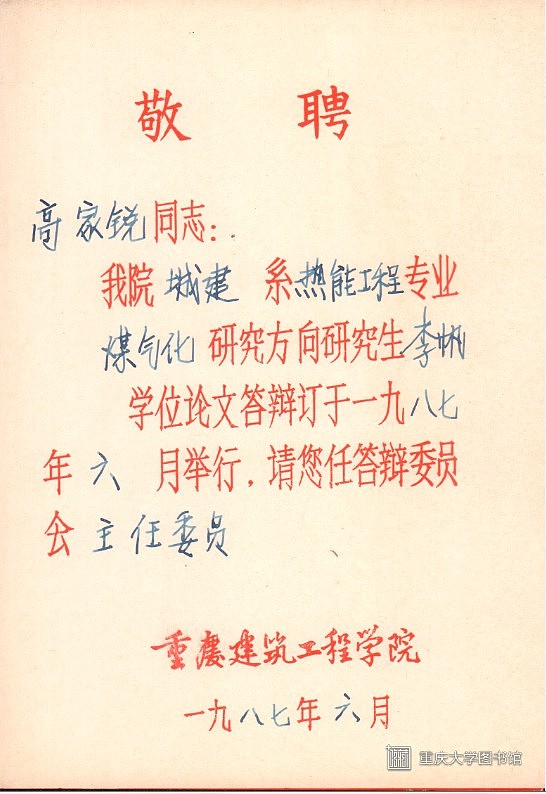 敬 聘
高家锐同志：
我院 城建 系热能工程专业
煤气化 研究方向研究生李帆
学位论文答辩订于一九八七
年 六 月举行，请您任答辩委员
会 主任委员
重庆建筑工程学院
一九八七年 六 月
重庆大学图书馆